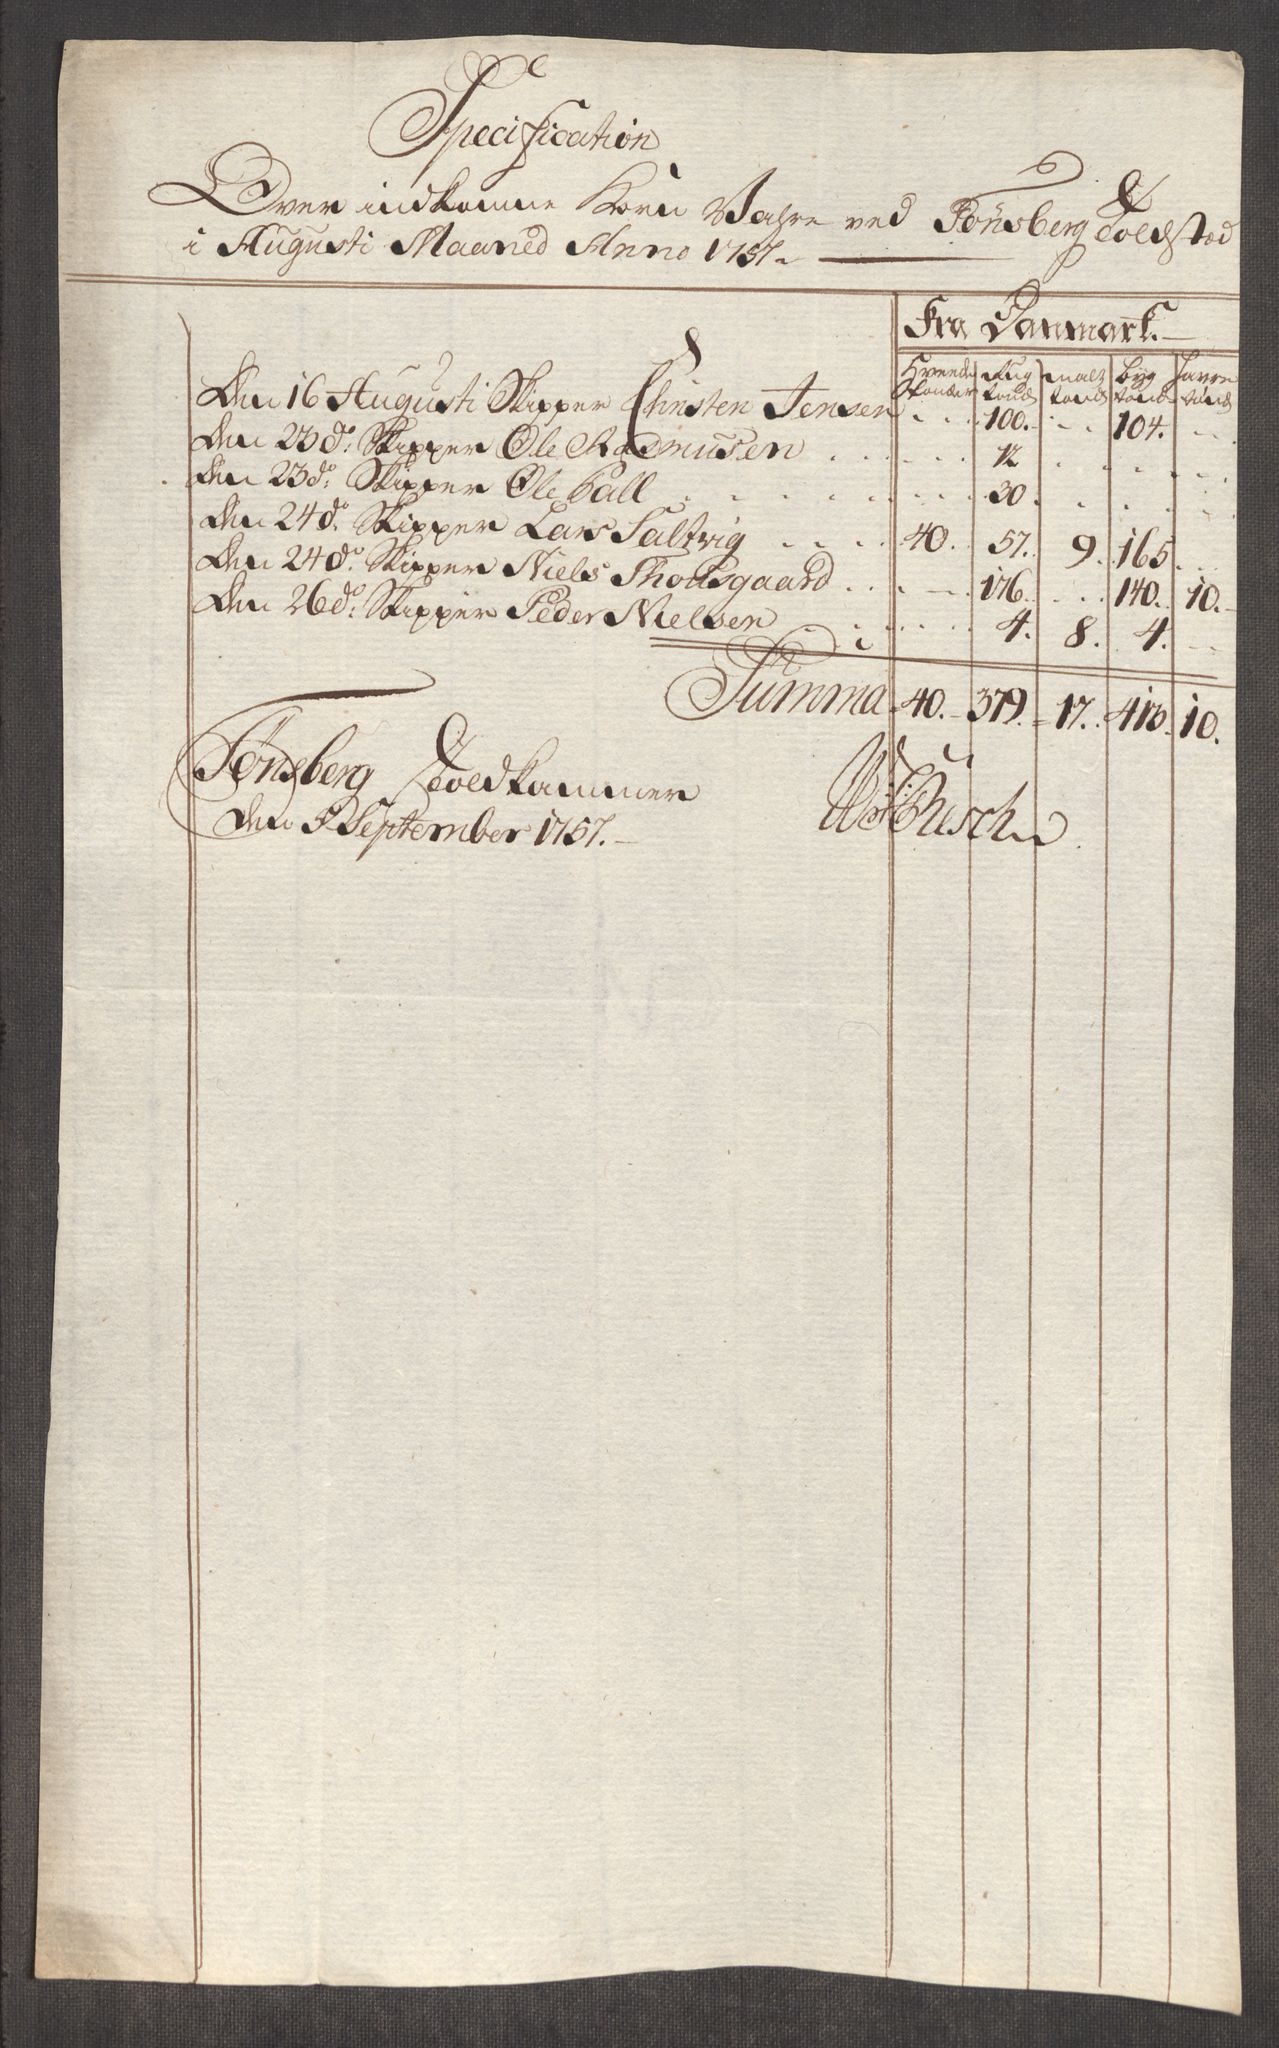 Specification
Over indkomne Korn Vahre ved Tönsberg Toldsted
i Augusti Maaned Anno 1757.
Fra Danmark.
Hvede Rug malt byg Havre
tönder tönd tönd tönd tönd
Den 16 Augusti Skipper Christen Jensen . . . 100. . . 104. . .
Den 23 do: Skipper Ole Rasmusen . . . 12 . . .
Den 23 do: Skipper Ole Pall . . . 30. . . .
Den 24 do: Skipper Lars Saltvig . . . 40. 57. 9. 165. . .
Den 24 do: Skipper Niels Thorsgaard . . . 176. . . 140. 10.
Den 26 do: Skipper Peder Nielsen . . . 4. 8. 4. . .
Summa 40. 379. 17. 413. 10.
Tönsberg Toldkammer
den 5 September 1757.
Busch